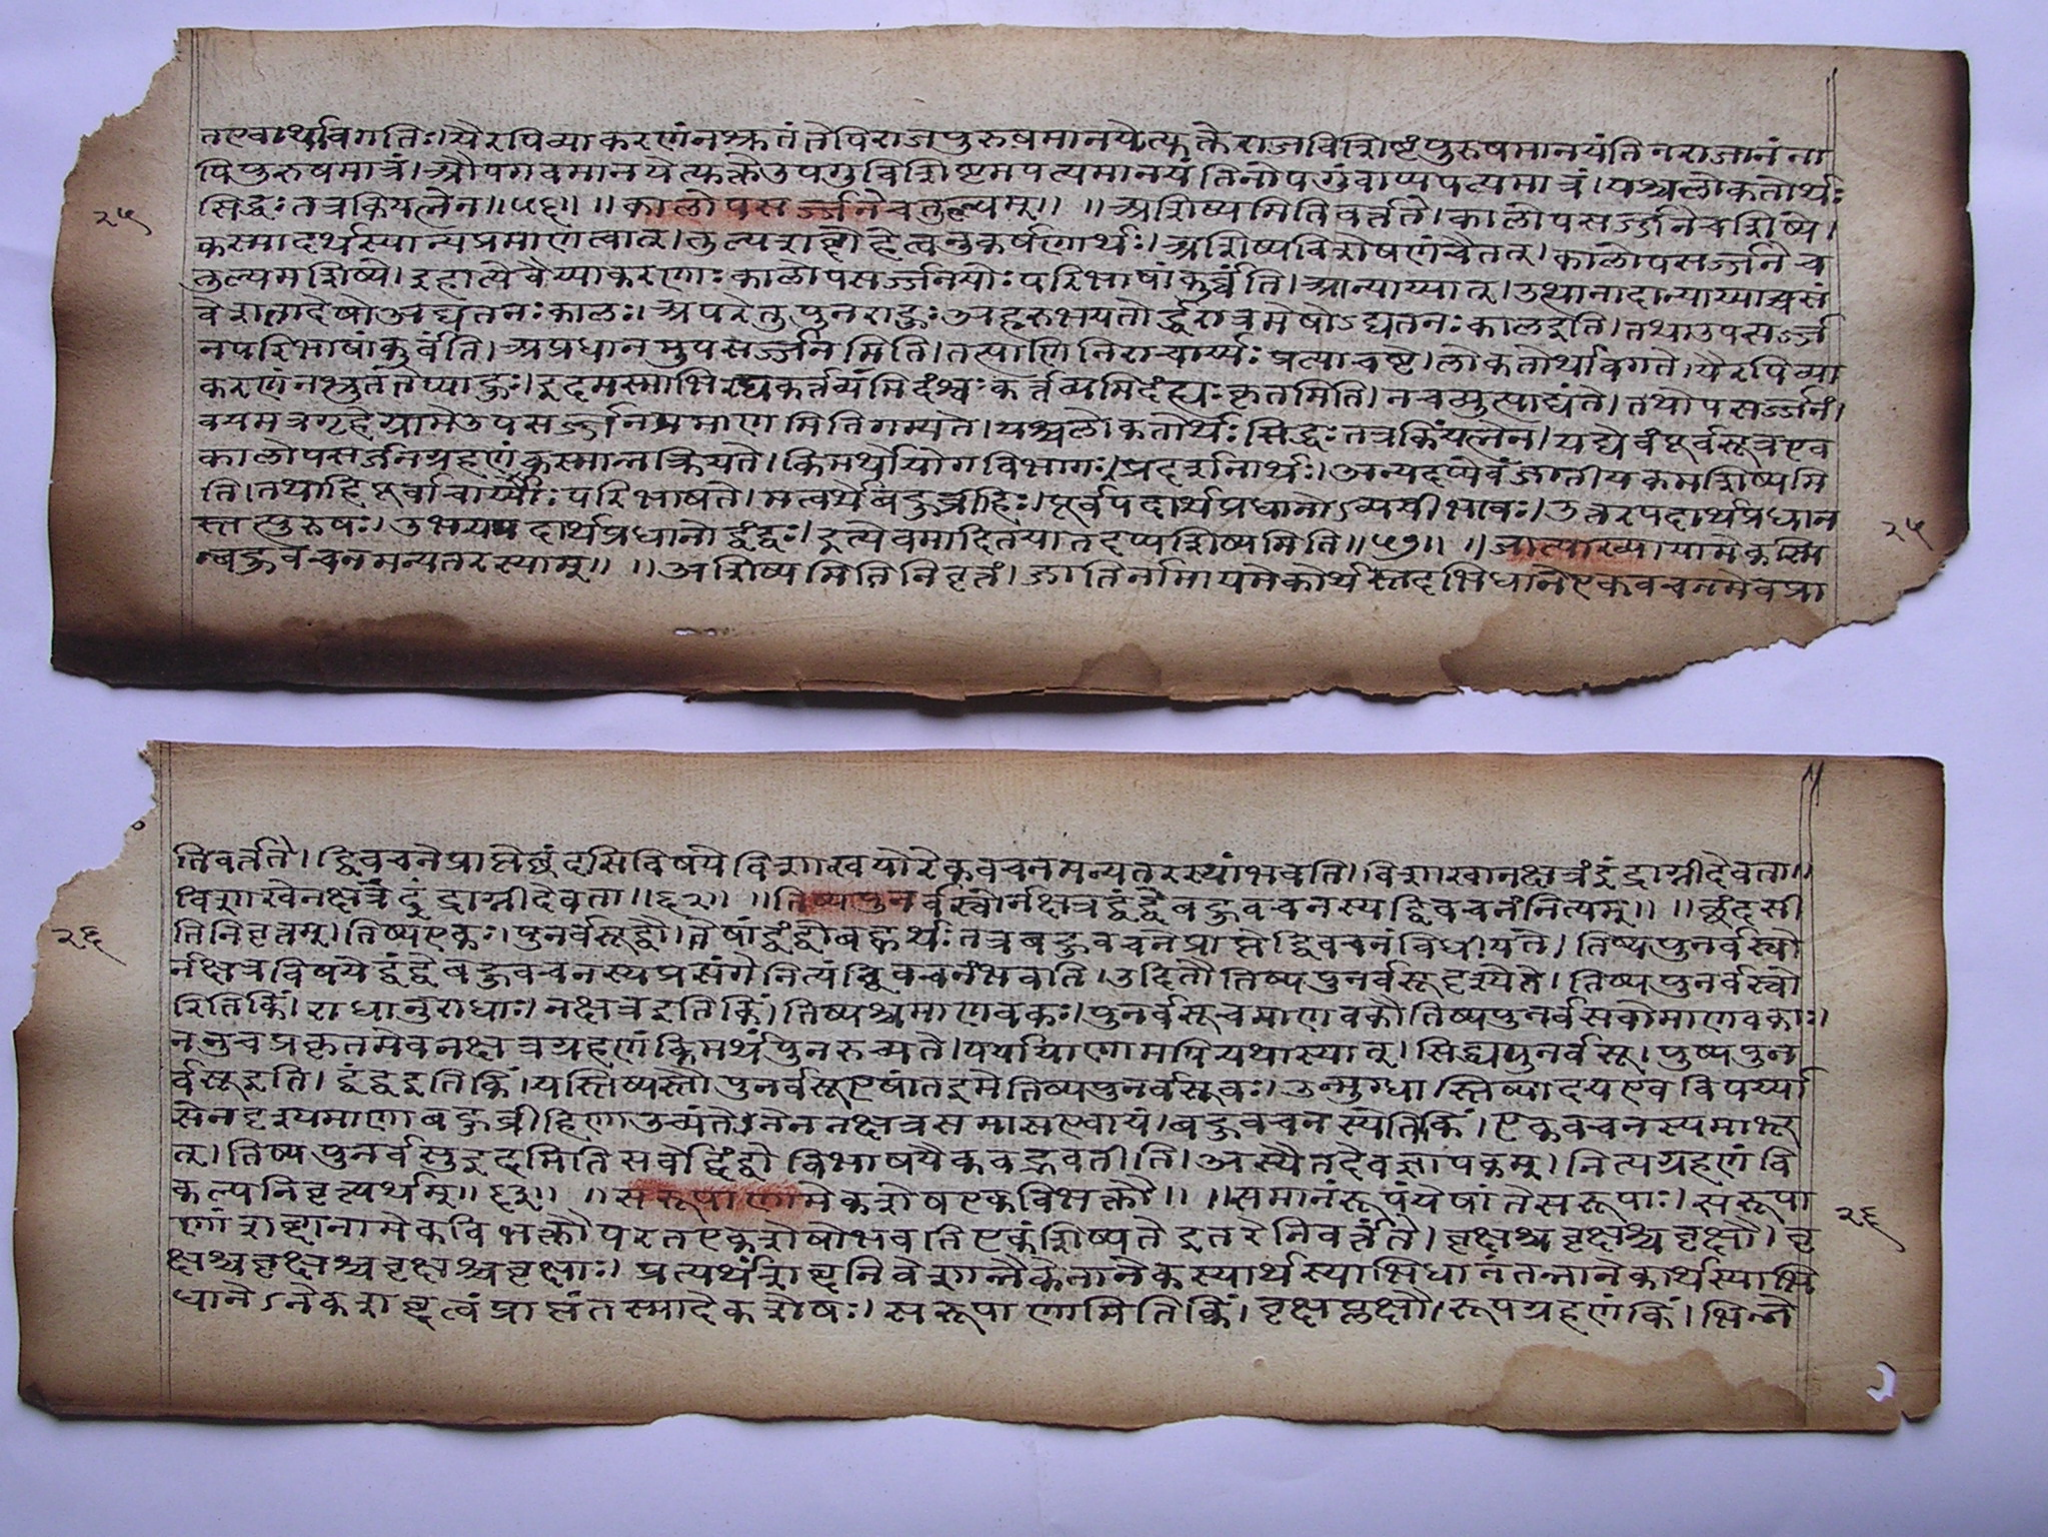 तएवार्थावगतिः। यैरपि व्याकरणं न श्रुतं तेपि राजपुरुषमानयेत्युक्ते राजविशिष्टं पुरुषमानयंति न राजानं ना
पि पुरुषमात्रं। औपगवमानयेत्युक्ते उपगुविशिष्टमपत्यमानयंति नोपगुं वाप्यपत्यमात्रं। यश्च लोकतोर्थः
सिद्धः तत्र किं यत्नेन॥५६॥ ॥कालोपसर्ज्जने च तुल्यम्॥ ॥अशिष्यमिति वर्त्तते। कालोपसर्ज्जने चाशिष्ये।
कस्मादर्थस्यान्यप्रमाणत्वात्। तुल्यशब्दो हेत्वनुकर्षणार्थः। अशिष्यविशेषणं चैतत्। कालोपसर्ज्जने च
तुल्यमशिष्ये। इहान्ये वैय्याकरणाः कालोपसर्ज्जनयोः परिभाषां कुर्व्वंति। आन्याय्यात्। उत्थानादान्याय्याच्च सं
वेशनादेषो अद्यतनः कालः। अपरे तु पुनराहुः अहरुभयतोर्द्धरात्रमेषोऽद्यतनः काल इति। तथा उपसर्ज्ज
न परिभाषां कुर्वंति। अप्रधानमुपसर्ज्जनमिति। तत्पाणिनिराचार्य्यः प्रत्याचष्टे। लोकतोर्थावगते। यैरपि व्या
करणं न श्रुतं तेप्याहुः। इदमस्माभिरद्य कर्तव्यंमिदं श्वः कर्त्तव्यमिदं ह्यः कृतमिति। न च व्युत्पाद्यंते। तथोपसर्ज्जनं।
वयमत्र गृहे ग्रामे उपसर्ज्जनमप्रमाणमिति गम्यते। यश्च लोकतोर्थः सिद्धः तत्र किं यत्नेन। यद्येवं पूर्वसूत्र एव
कालोपसर्जनग्रहणं कस्मान्न क्रियते। किमर्थो योगविभागः। प्रदर्शनार्थः। अन्यदप्येवंजातीयकमशिष्यमि
ति। तथाहि पूर्वाचार्य्याः परिभाषते। मत्वर्थे बहुव्रीहिः। पूर्वपदार्थप्रधानोऽव्ययीभावः। उत्तरपदार्थप्रधान
स्तत्पुरुषः। उभयपदार्थप्रधानो द्वंद्वः। इत्येवमादि तयातदप्यशिष्यमिति॥५७॥ ॥जात्याख्यायामेकस्मि
न्बहुवचनमन्यतरस्याम्॥ ॥अशिष्यमिति निवृत्तं। जातिर्नामायमेकोर्थस्तदभिधाने एकवचनमेव प्रा
२५
२५
ति वर्त्तते। द्विवचने प्राप्ते छंदसि विषये विशाखयोरेकवचनमन्यतरस्यां भवति। विशाखा नक्षत्रं इंद्राग्नी देवता॥
विशाखे नक्षत्रं इंद्राग्नी देवता॥६२॥ ॥तिष्यपुनर्वस्वोर्नक्षत्रद्वंद्वे बहुवचनस्य द्विवचनं नित्यम्॥ ॥छंदसी
ति निवृत्तम्। तिष्य एकः। पुनर्वसू द्वौ। तेषां द्वंद्वो बह्वर्थः तत्र बहुवचने प्राप्ते द्विवचनं विधीयते। तिष्यपुनर्वस्वो
र्नक्षत्रविषये द्वंद्वे बहुवचनस्य प्रसंगे नित्यं द्विवचनं भवति। उदितौ तिष्यपुनर्वसू दृश्येते। तिष्यपुनर्वस्वो
रिति किं। राधानुराधाः। नक्षत्र इति किं। तिष्यश्च माणवकः। पुनर्वसू च माणवकौ तिष्यपुनर्वसवो माणवकाः।
ननु च प्रकृतमेव नक्षत्रग्रहणं किमर्थं पुनरुच्यते। पर्यायाणामपि यथा स्यात्। सिद्ध्यपुनर्वसू। पुष्यपुन
र्वसू इति। द्वंद्व इति किं। यस्तिष्यस्तौ पुनर्वसू एषां त इमे तिष्यपुनर्वसवः। उन्मुग्धास्तिष्यादय एव विपर्य्या
सेन दृश्यमाणा बहुव्रीहिणा उच्यंते। तेन नक्षत्रसमास एवायं। बहुवचनस्येति किं। एकवचनस्य माभू
त्। तिष्यपुनर्वसु इदमिति सर्वो द्वंद्वो विभाषयैकवद्भवतीति। अस्यैतदेव ज्ञापकम्। नित्यग्रहणं वि
कल्पनिवृत्त्यर्थम्॥६३॥ ॥सरूपाणामेकशेष एकविभक्तौ॥ ॥समानं रूपं येषां ते सरूपाः। सरूपा
णां शब्दानामेकविभक्तौ परत एकशेषो भवति एकं शिष्यते इतरे निवर्त्तंते। वृक्षश्च वृक्षश्च वृक्षौ। वृ
क्षश्च वृक्षश्च वृक्षश्च वृक्षाः। प्रत्यर्थं शब्दनिवेशान्नैकेनानेकस्यार्थस्याभिधानं तन्नानेकार्थस्याभि
धानेऽनेकशब्दत्वं प्राप्तं तस्मादेकशेषः। सरूपाणामिति किं। वृक्षप्लक्षौ। रूपग्रहणं किं। भिन्ने
२६
२६